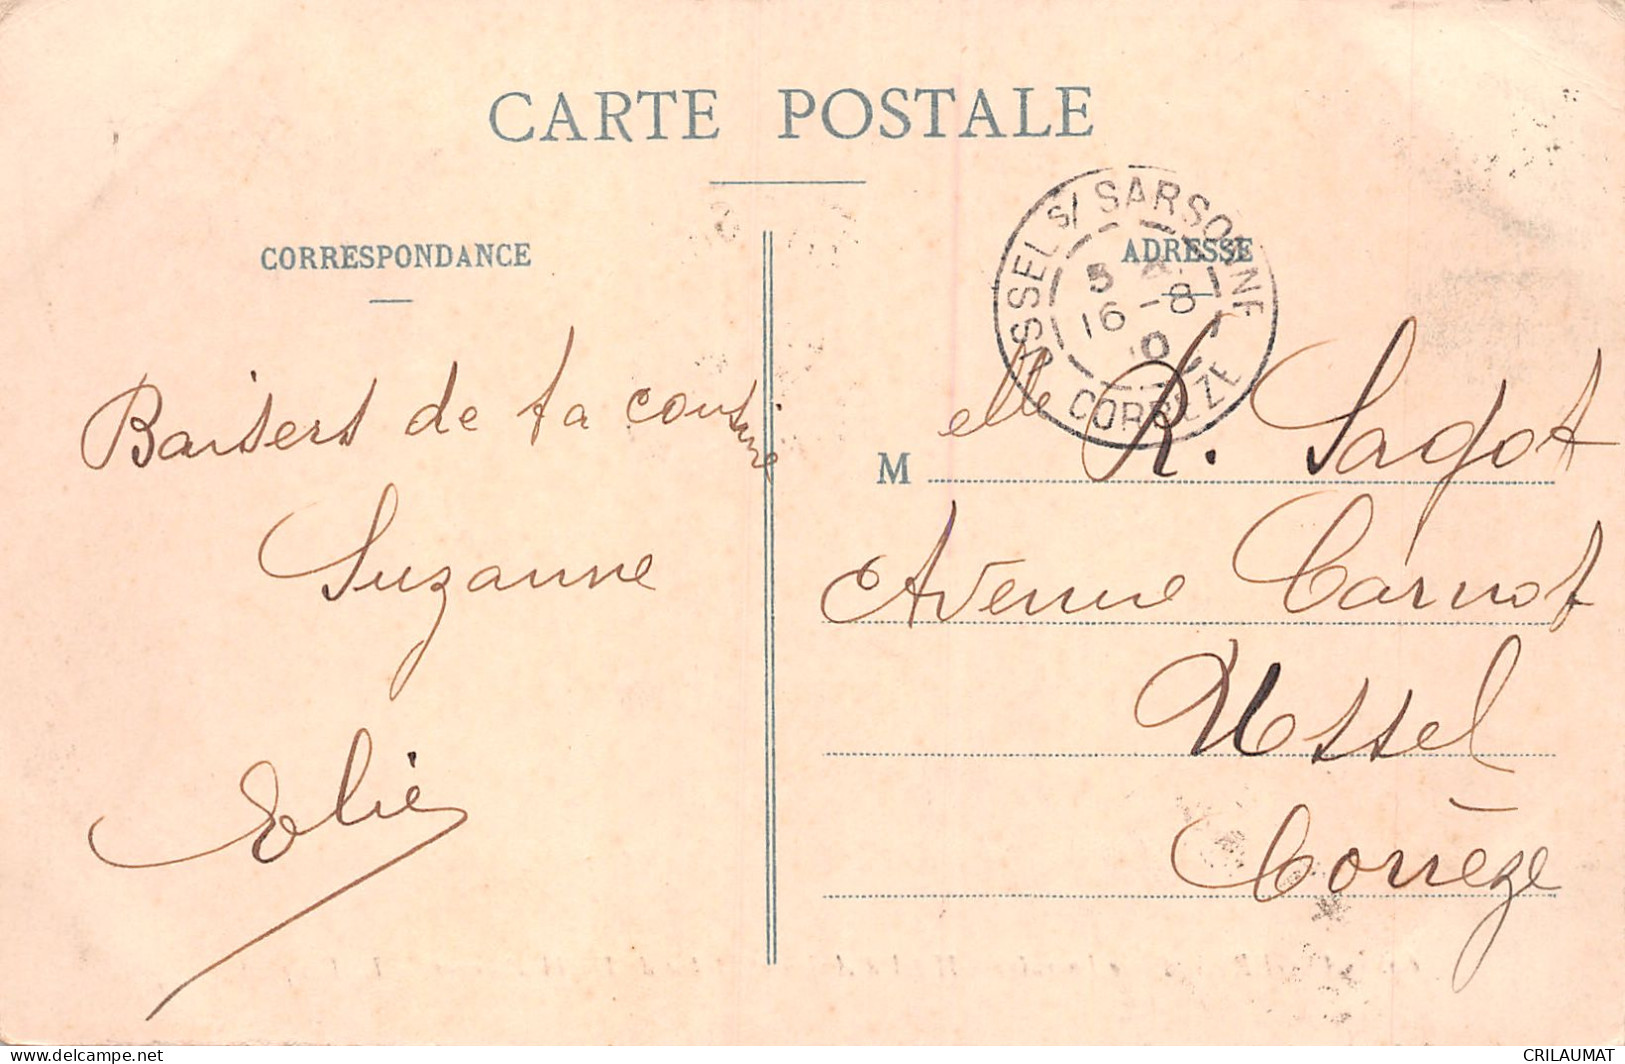 CARTE POSTALE
CORRESPONDANCE
ADRESSE
USSEL S/ SARSONNE
5
16 -8
0
CORRÈZE
Baisers de ta cousine
Suzanne
Elie
M elle R. Sagot
Avenue Carnot
Ussel
Corrèze
https://www.delcampe.net
CRILAUMAT